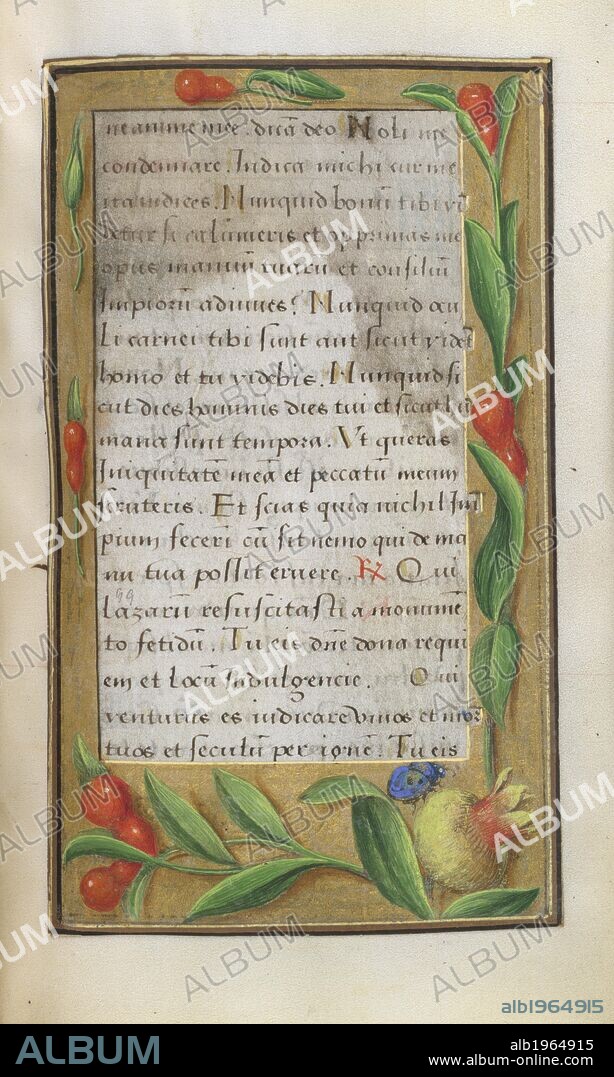 ne anime mee. dicā deo Noli me
condennare. Indica michi cur me
ita iudices. Nunquid bonū tibi vi
detur si calūmeris et opprimas me
opus manuū tuarū et consiliū
Impiorū adiuues? Nunquid ocu
Li carnei tibi sunt aut sicut videt
homo et tu videbis. Nunquid si
cut dies hominis dies tui et sicut hu
mana sunt tempora. Vt queras
Iniquitatē meā et peccatū meum
scruteris. Et scias quia nichil Im
pium fecerī cū sit nemo qui de ma
nu tua possit eruere. ℟ Qui
99
lazarū resuscitasti a monumē
to fetidū. Tu eis dn̄e dona requi
em et Locū Indulgencie. Qui
venturus es iudicare viuos et mor
tuos et seculū per ignē. Tu eis
ALBUM
alb1964915
ALBUM
alb1964915
www.album-online.com